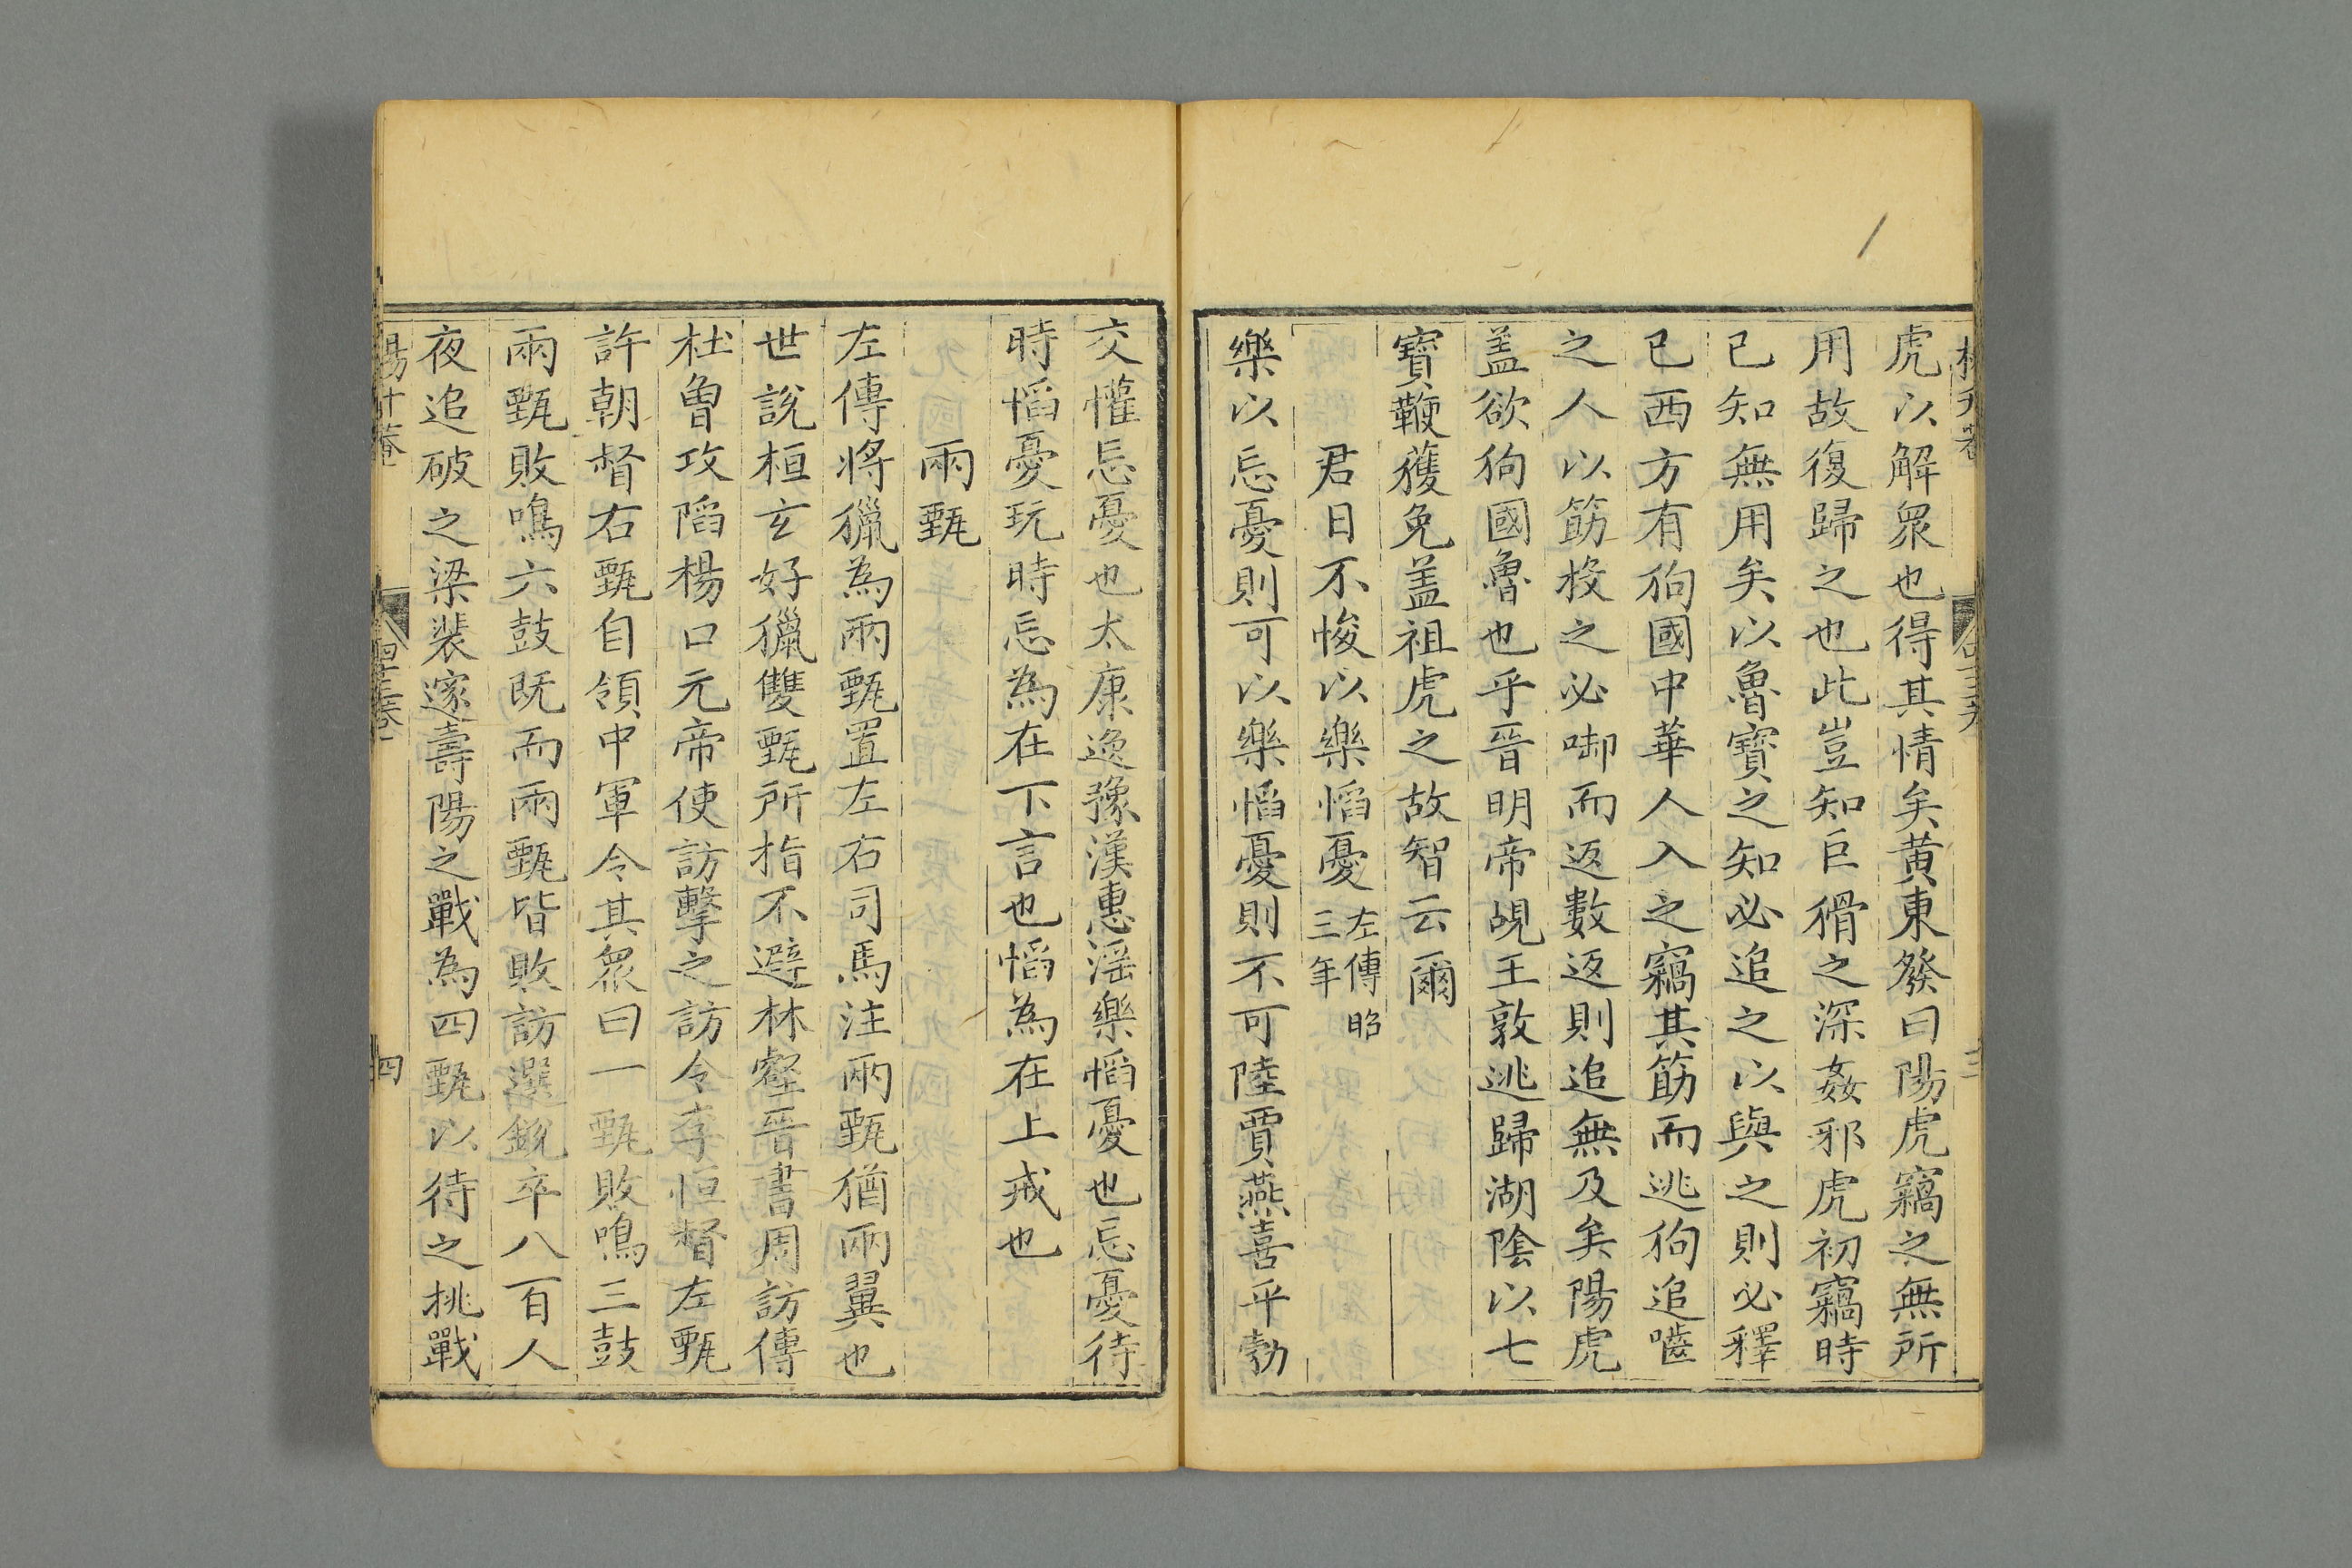 虎以解衆也得其情矣黄東發曰陽虎竊之無所
用故復歸之也此豈知巨猾之深姦邪虎初竊時
已知無用矣以魯寶之知必追之以與之則必釋
已西方有狗國中華人入之竊其筯而逃狗追嚙
之人以筯投之必啣而返數返則追無及矣陽虎
盖欲狗國魯也乎晉明帝覘王敦逃歸湖陰以七
寶鞭獲免盖祖虎之故智云爾
君日不悛以樂慆憂左傳昭三年
樂以忘憂則可以樂慆憂則不可陸賈燕喜平勃
交懽忘憂也太康逸豫漢惠滛樂慆憂也忘憂待
時慆憂玩時忘為在下言也慆為在上戒也
兩甄
左傳將獵為兩甄置左右司馬注兩甄猶兩翼也
世說桓玄好獵雙甄所指不避林壑晉書周訪傳
杜曾攻陷楊口元帝使訪擊之訪令李恒督左甄
許朝督右甄自領中軍令其衆曰一甄敗鳴三鼓
兩甄敗鳴六鼓既而兩甄皆敗訪選銳卒八百人
夜追破之梁裴邃壽陽之戰為四甄以待之挑戰
四